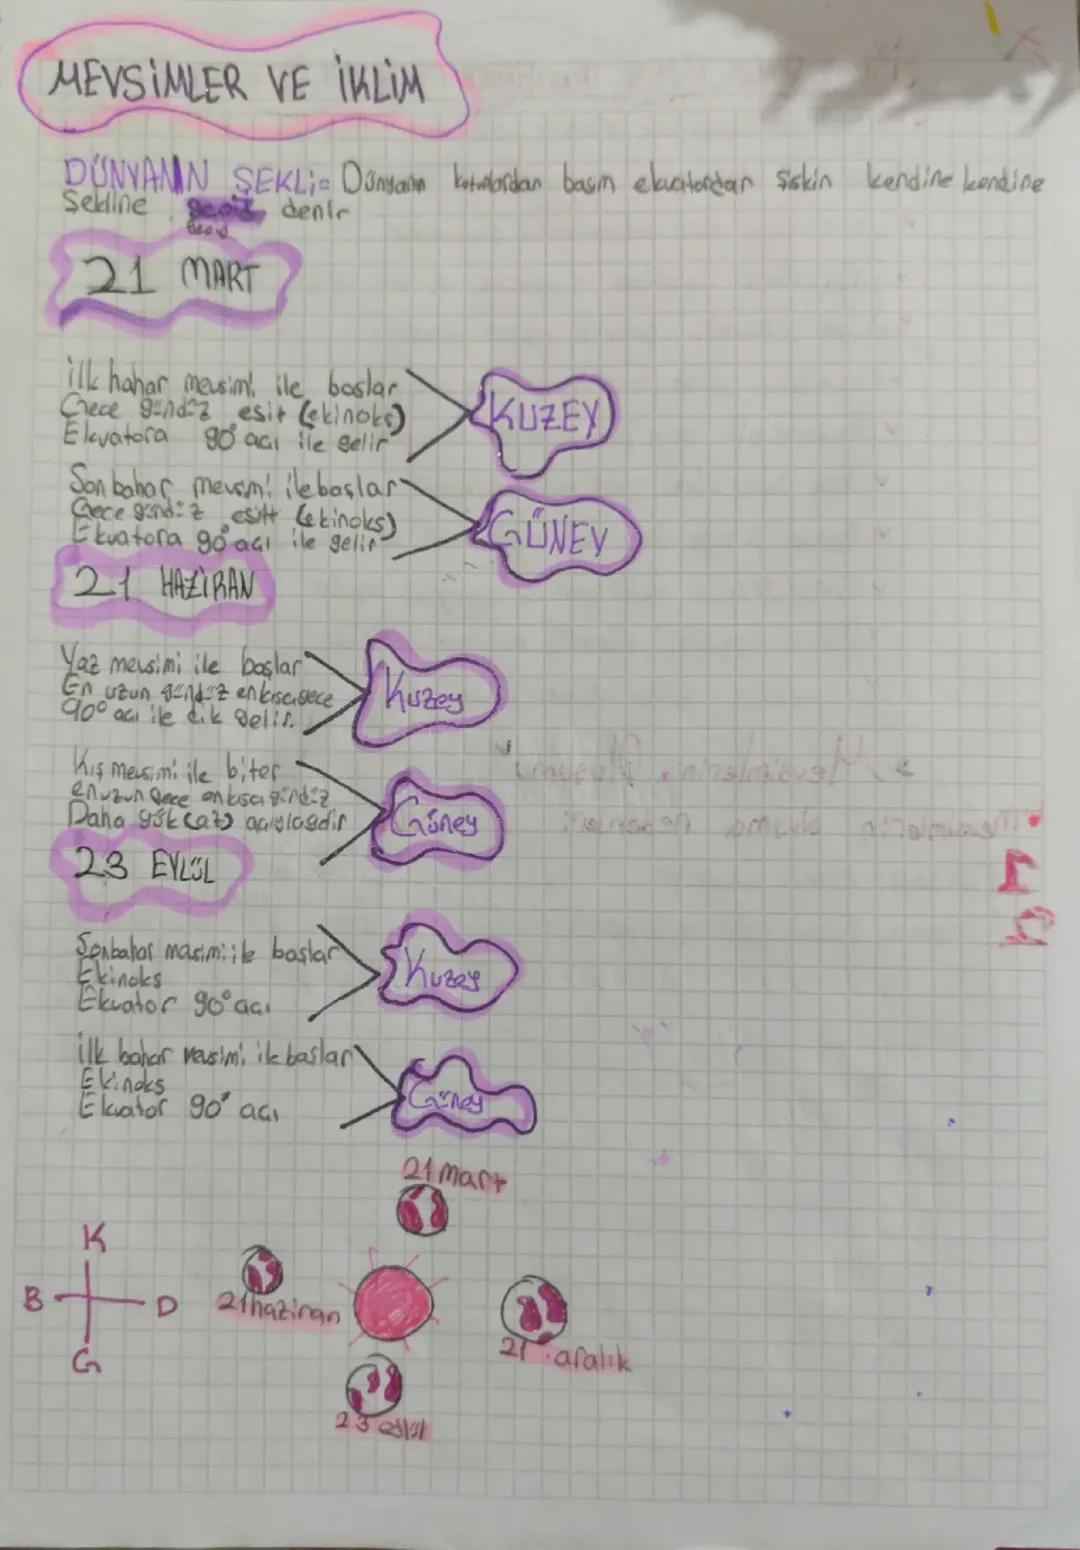 MEVSİMLER VE İKLİM
DÜNYANIN ŞEKLİ= Dünyanın kutuplardan basın ekvatordan şişkin kendine kendine
Şekline geoid denir
Geoid
21 MART
İlk bahar mevsimi ile başlar
Gece gündüz eşit (ekinoks)
Ekvatora 90° açı ile gelir
KUZEY
Son bahar mevsimi ile başlar
Gece gündüz eşit (ekinoks)
Ekvatora 90° açı ile gelir
GÜNEY
21 HAZİRAN
Yaz mevsimi ile başlar
En uzun gündüz en kısa gece
90° açı ile dik gelir.
Kuzey
Kış mevsimi ile biter
en uzun gece en kısa gündüz
Daha (az)
Güney
23 EYLÜL
Sonbahar mevsimi ile başlar
Ekinoks
Ekvator 90° açı
Kuzey
İlk bahar mevsimi ile başlar
Ekinoks
Ekvator 90° açı
Güney
21 Mart
K
B D
G
21 haziran
21 aralık
23 eylül